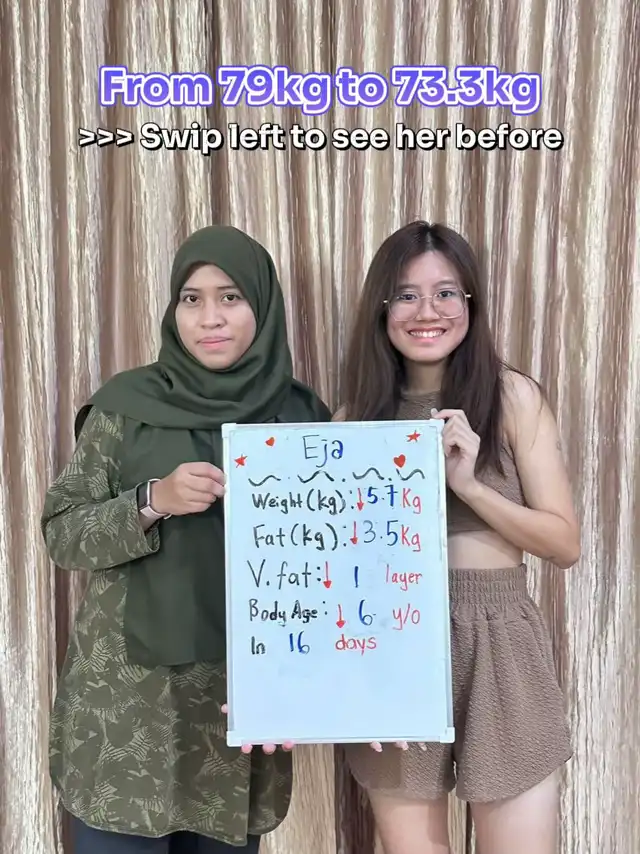 From 79kg to 73.3kg
>>> Swip left to see her before
Eja
Weight(kg): ↓5.7 Kg
Fat(kg): ↓3.5kg
V. fat: ↓ 1 layer
Body Age: ↓ 6 y/o
In 16 days